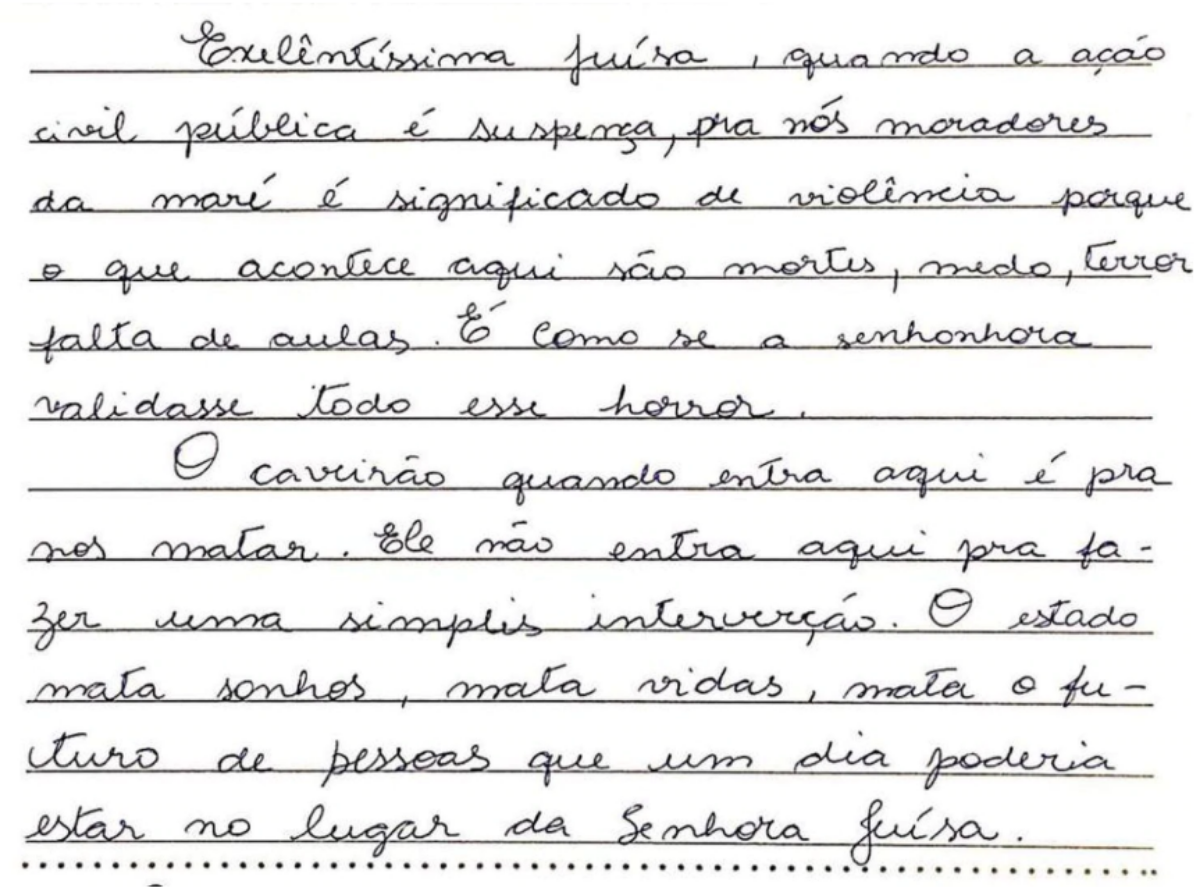 Exelêntíssima juísa, quando a ação
civil pública é suspença, pra nós moradores
da maré é significado de violência porque
o que acontece aqui são mortes, medo, terror
falta de aulas. É como se a senhonhora
validasse todo esse horror.
O caveirão quando entra aqui é pra
nos matar. Ele não entra aqui pra fa-
zer uma simples interverção. O estado
mata sonhos, mata vidas, mata o fu-
turo de pessoas que um dia poderia
estar no lugar da Senhora juísa.